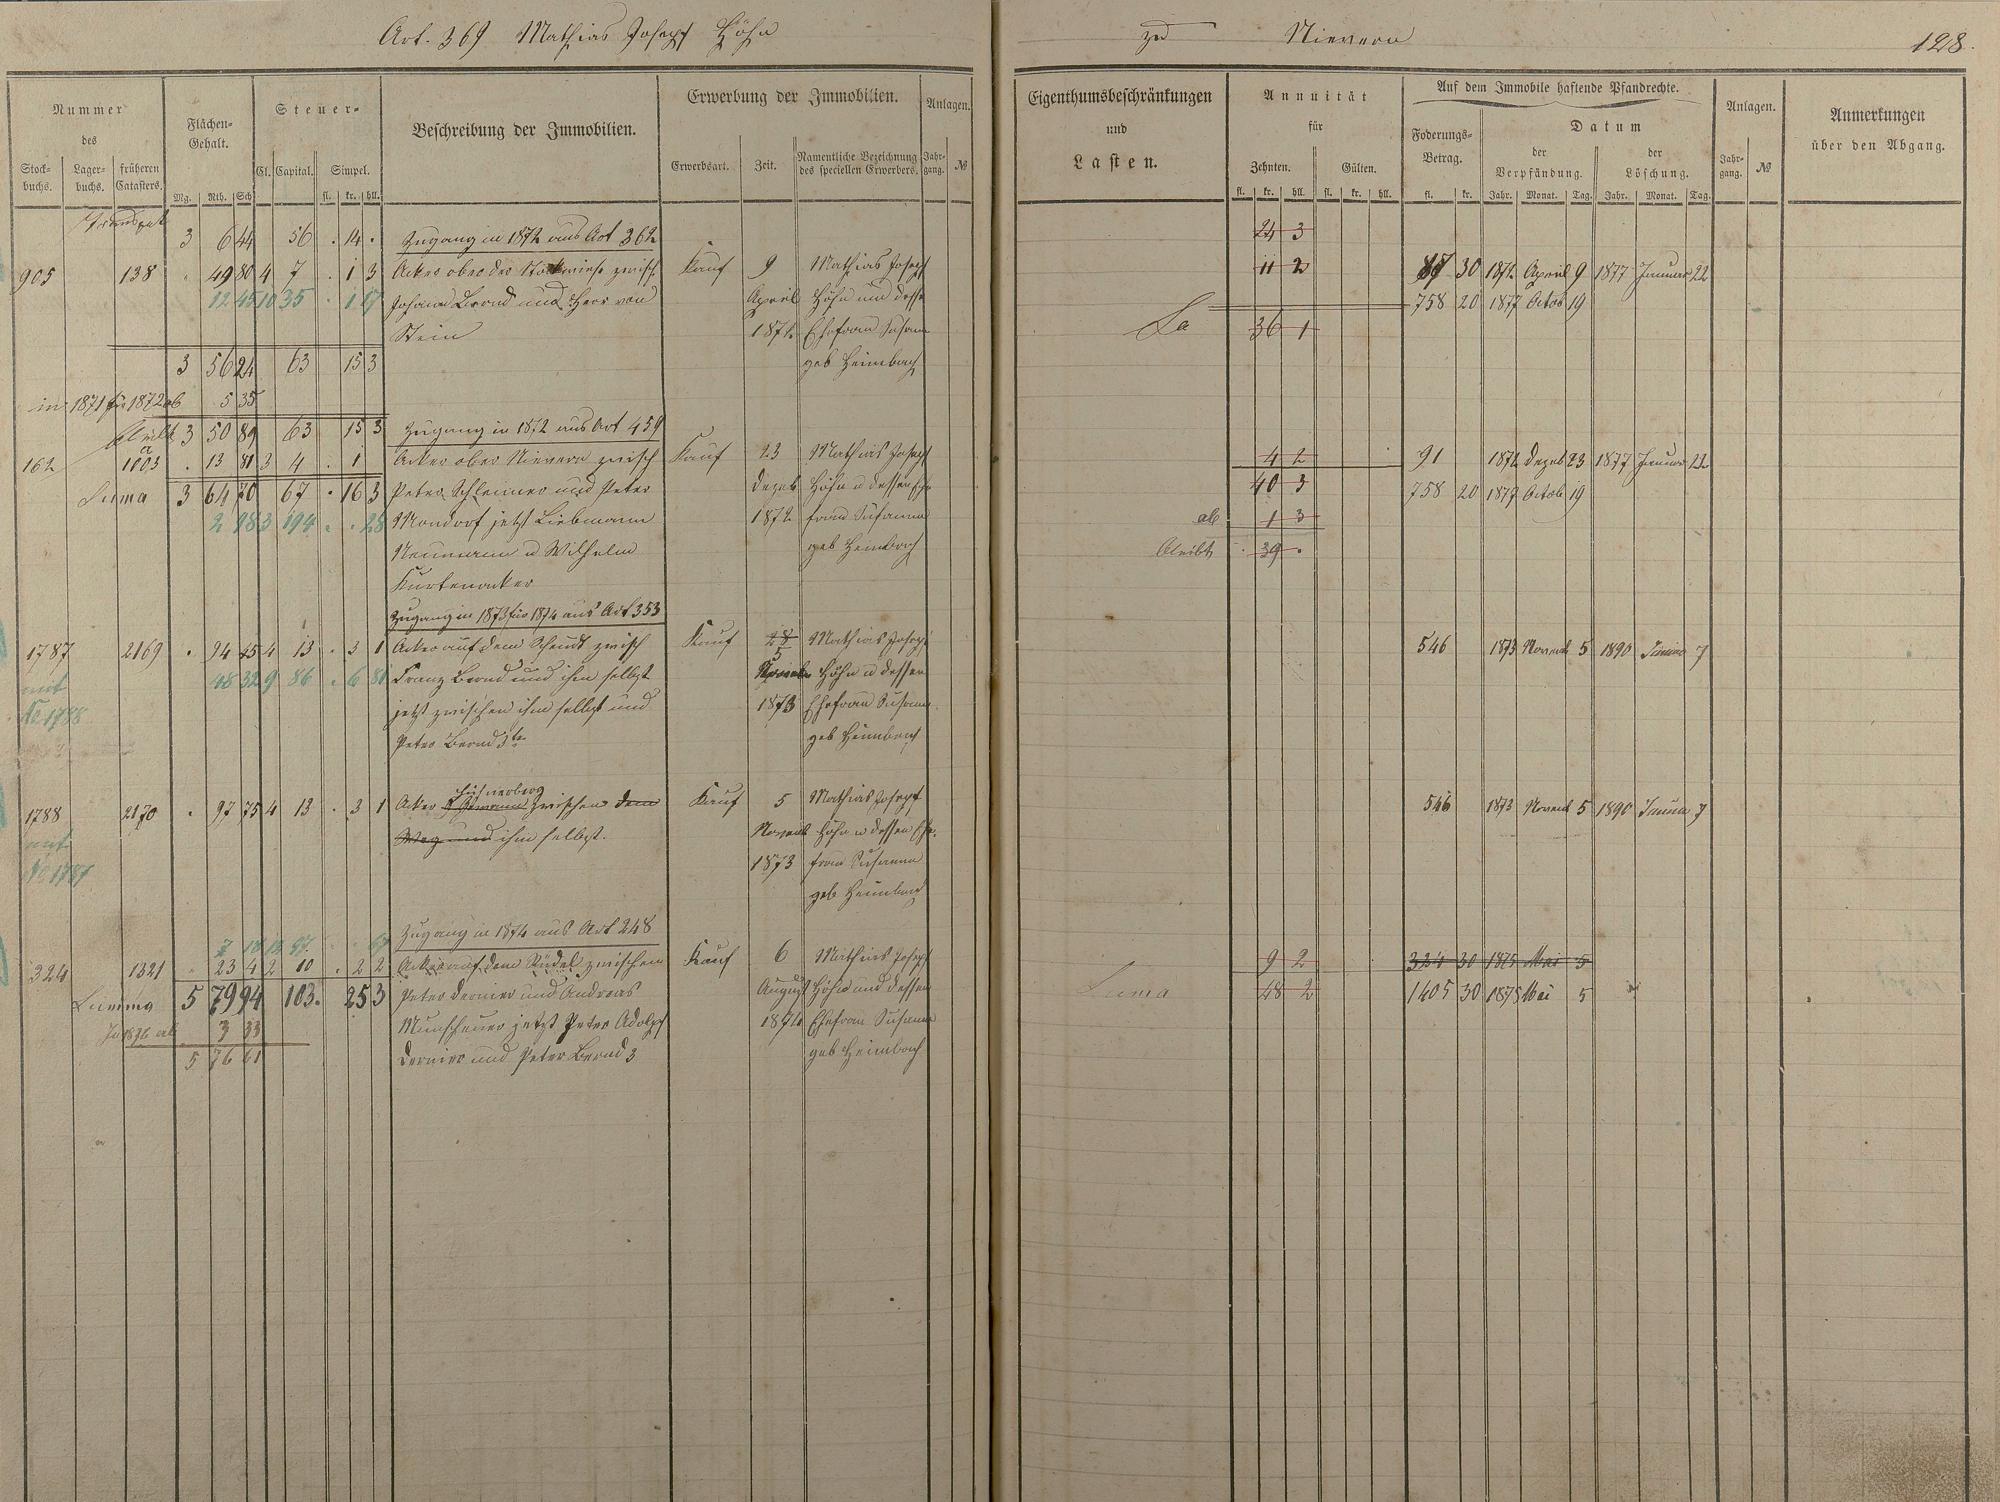 Art. 369 Mathias Joseph Höhn
zu Nievern 128.
Nummer
des
Stock-
buchs.
Lager-
buchs.
früheren
Catasters.
Flächen-
Gehalt.
Mg. Rth. Sch
Steuer-
Cl. Capital. Simpel.
fl. kr. hll.
Beschreibung der Immobilien.
Erwerbung der Immobilien.
Erwerbsart. Zeit. Namentliche Bezeichnung
des speciellen Erwerbers.
Anlagen.
Jahr-
gang. №
Eigenthumsbeschränkungen
und
Lasten.
Annuität
für
Zehnten. Gülten.
fl. kr. hll. fl. kr. hll.
Auf dem Immobile haftende Pfandrechte.
Foderungs-
Betrag.
fl. kr.
Datum
der
Verpfändung.
der
Löschung.
Jahr. Monat. Tag. Jahr. Monat. Tag.
Anlagen.
Jahr-
gang. №
Anmerkungen
über den Abgang.
Transport 3 6 44 56 . 14 . Zugang in 1872 aus Art 362 24 3
905 138 . 49 80 4 7 . 1 3 Acker ober der Stockwiese zwisch Kauf 9 Mathias Joseph 11 2 87 30 1872 April 9 1877 Januar 22
12 45 10 35 . 1 17 Johann Bernd und Herr von April Höhn und desse 758 20 1877 Octob 19
Stein 1872 Ehefrau Susann La 36 1
3 56 24 63 15 3 geb Heimbach
in 1871 für 1872 ab 5 35
bleibt 3 50 89 63 15 3 Zugang in 1872 aus Art 459
162 1003 a . 13 81 3 4 . 1 Acker ober Nievern zwisch Kauf 23 Mathias Joseph 4 2 91 1872 Dezeb 23 1877 Januar 22
Suma 3 64 70 67 . 16 3 Peter Schleimer und Peter Dezeb Höhn u dessen Ehe 40 3 758 20 1877 Octob 19
2 28 3 194 . . 28 Mondorf jetzt Liebmann 1872 frau Susanna ab 1 3
Neumann u Wilhelm geb Heimbach bleibt . 39 .
Kurtenacker
Zugang in 1873 für 1874 aus Art 353
1787 2169 . 94 45 4 13 . 3 1 Acker auf dem Scheudt zwisch Kauf 28 Mathias Joseph 546 1873 Novemb 5 1890 Januar 7
mit 48 32 9 86 . 6 81 Franz Bernd und ihm selbst 5 Novemb Höhn u dessen
No 1788 jetzt zwischen ihm selbst und 1873 Ehefrau Susann
Peter Bernd 3te geb Heimbach
1788 2170 . 97 75 4 13 . 3 1 Acker zwischen dem Kauf 5 Mathias Joseph 546 1873 Novemb 5 1890 Januar 7
mit Weg und ihm selbst. Novemb Höhn u dessen Ehe-
No 1787 1873 frau Susanna
geb Heimbach
Zugang in 1874 aus Art 248
324 1321 . 23 4 2 10 . 2 2 Acker auf dem Rüdel zwischen Kauf 6 Mathias Joseph 9 2 324 30 1875 Mai 5
Summa 5 79 94 103. 25 3 Peter Dernier und Andreas August Höhn und dessen Suma 48 2 1405 30 1875 Mai 5
In 1876 ab 3 33 Munscheuer jetzt Peter Adolph 1874 Ehefrau Susanna
5 76 61 Dernier und Peter Bernd 3 geb Heimbach